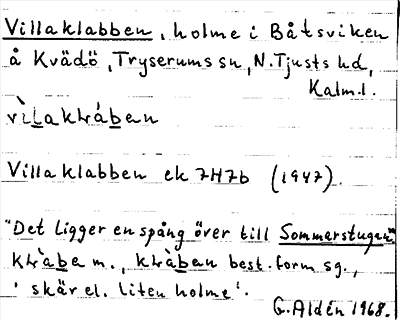 Villaklabben, holme i Båtsviken
å Kvädö, Tryserums sn, N. Tjusts hd,
Kalm.l.
Villaklabben ek 7H7b (1947).
"Det ligger en spång över till Sommarstugan"
m., best. form sg.,
'skär el. liten holme'.
G. Aldén 1968.